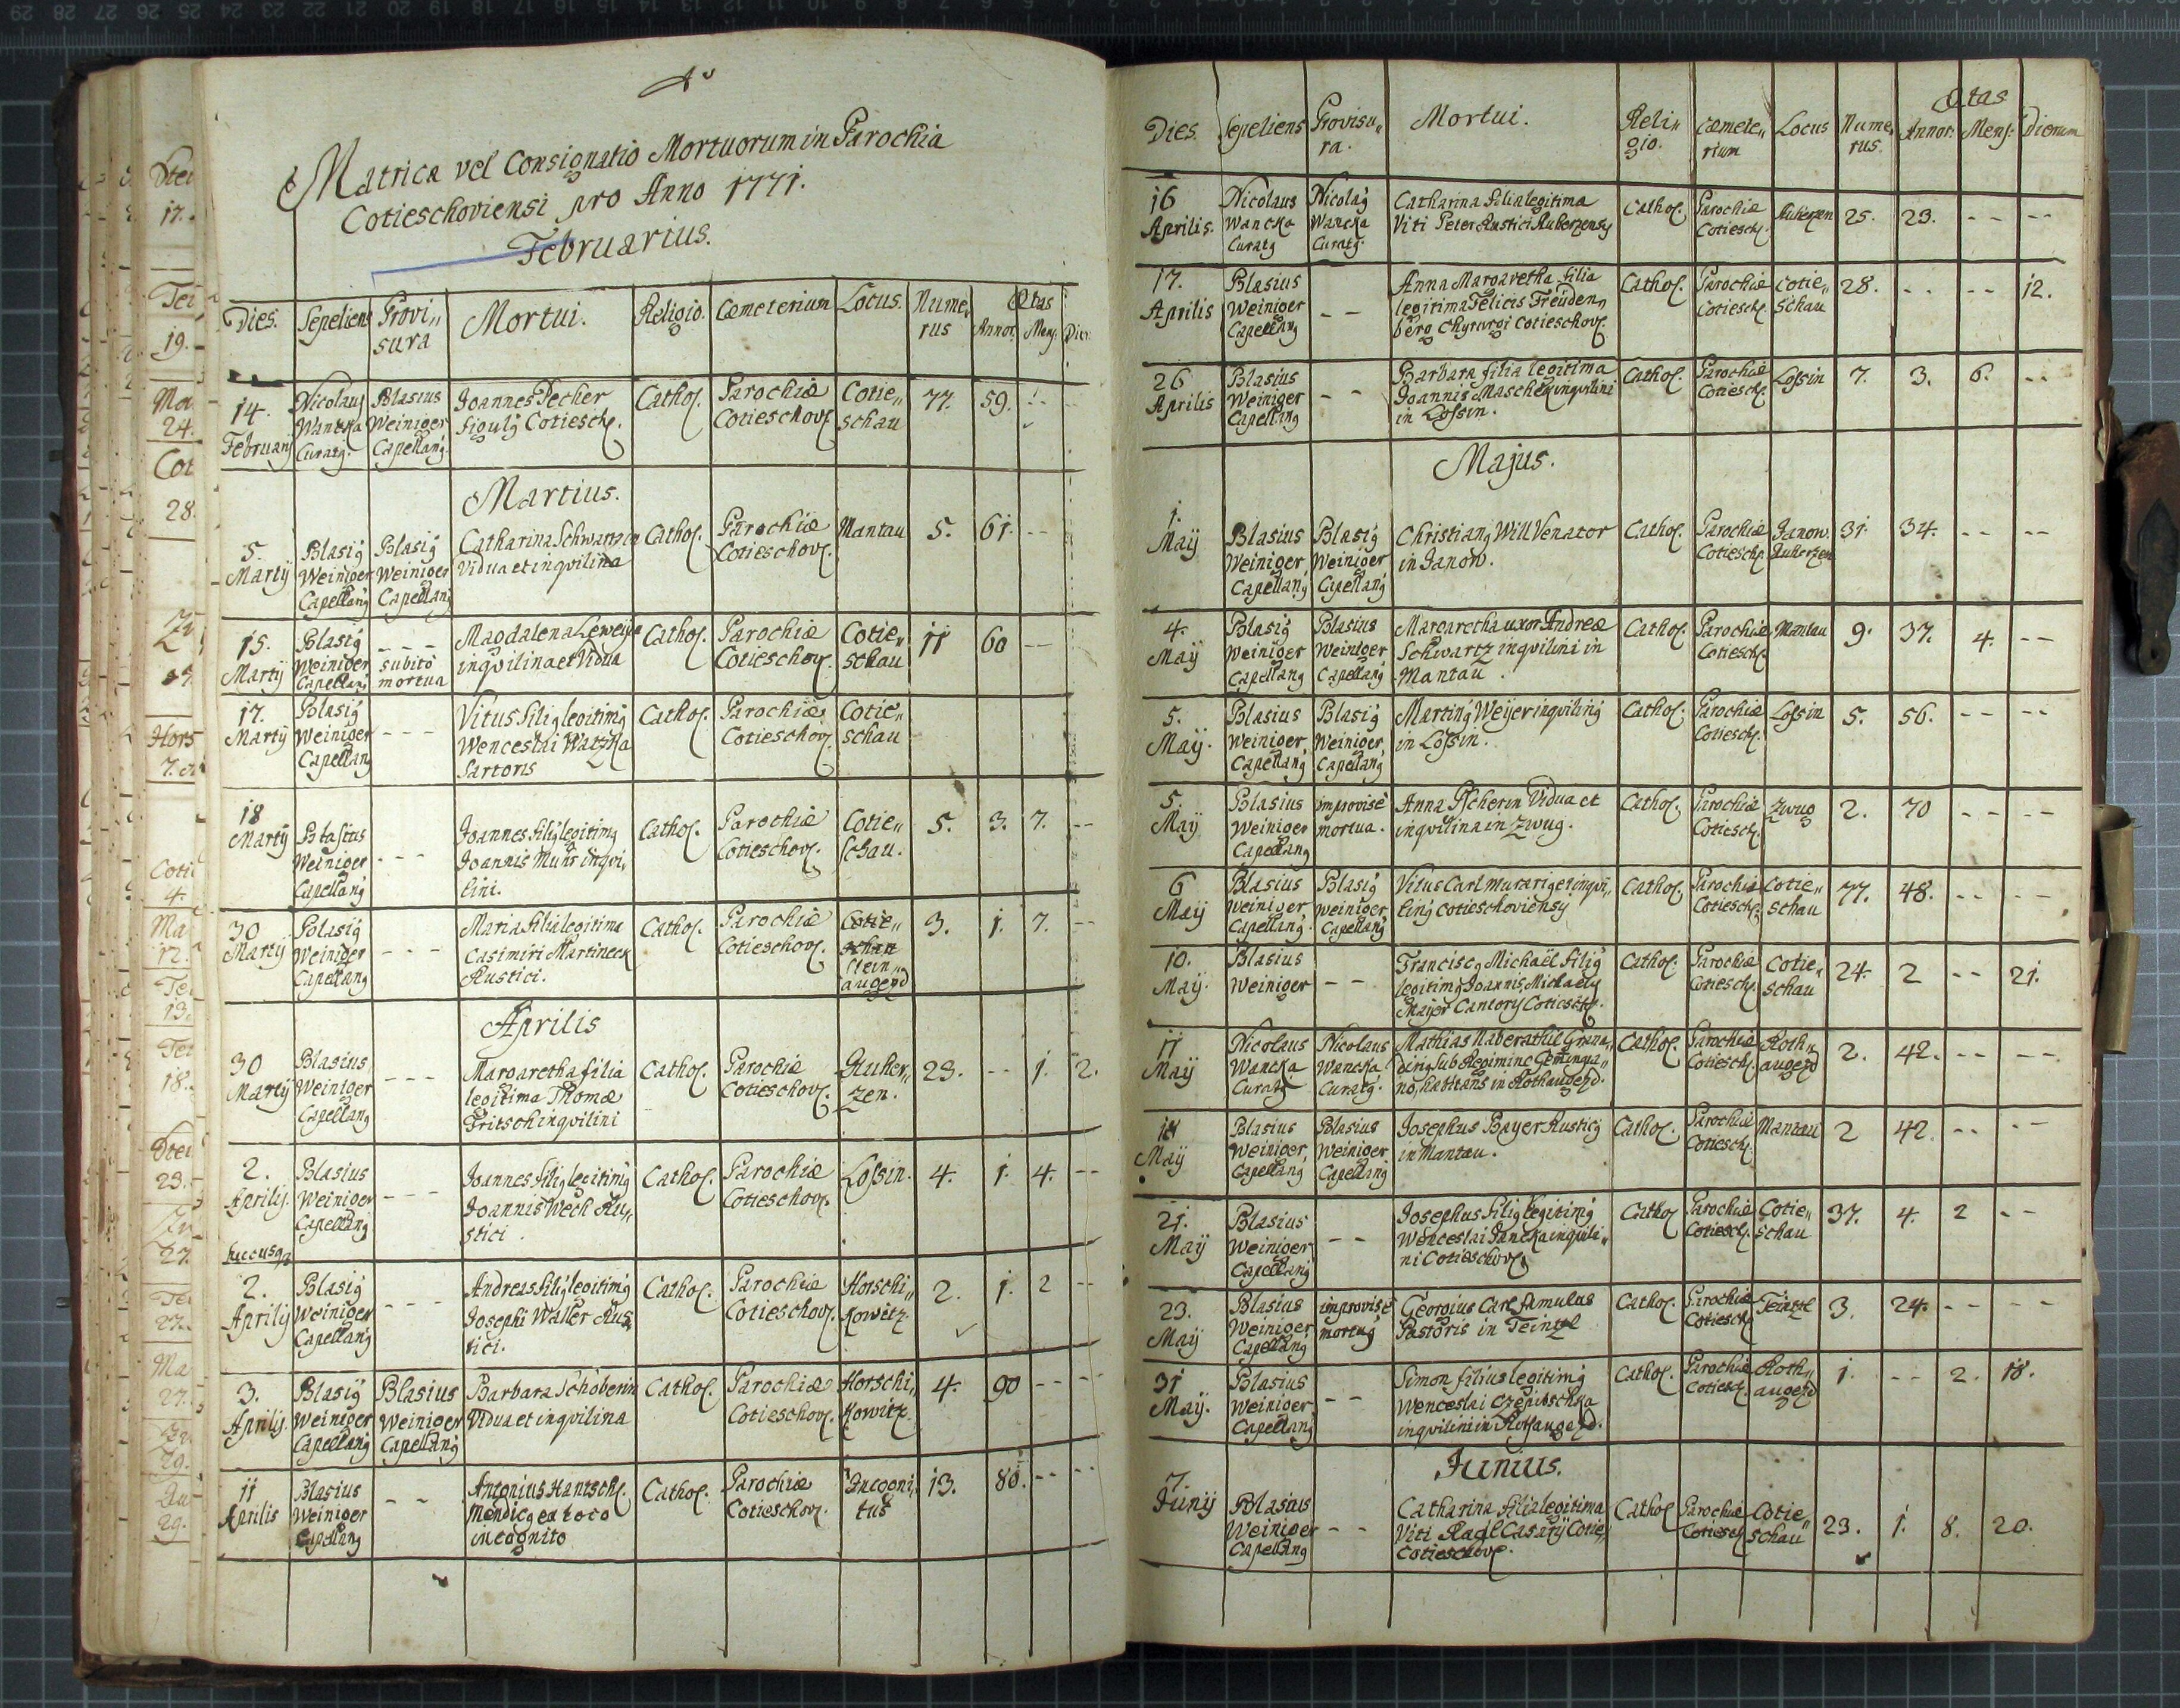 Matrica vel Consignatio Mortuorum in Parochia
Cotieschoviensi pro Anno 1771.
Februarius.
Dies. Sepeliens Provi„ sura Mortui. Religio. Cœmeterium Locus. Nume„ rus Ætas Annor. Mens. Dier.
14. Februarij Nicolaus Wancka Curatg. Blasius Weiniger Capellang. Joannes Pecher figulg Cotiesch. Cathol. Parochiæ Cotieschov. Cotie„ schau 77. 59. --
Martius.
5. Martij Blasig Weiniger Capellang Blasig Weiniger Capellang Catharina Schwartzin Vidua et inqvilina Cathol. Parochiæ Cotieschov. Mantau 5. 61. --
15. Martij Blasig Weiniger Capellang --- subitò mortua Magdalena inqvilina et Vidua Cathol. Parochiæ Cotieschov. Cotie„ schau 11 60 --
17. Martij Blasig Weiniger Capellang --- Vitus filig legitimg Wenceslai Watzka Sartoris Cathol. Parochiæ Cotieschov. Cotie„ schau
18 Martij Blasius Weiniger Capellang --- Joannes filig legitimg Joannis Muhr inqvi„ lini. Cathol. Parochiæ Cotieschov. Cotie„ schau. 5. 3. 7. --
30 Martij Blasig Weiniger Capellang --- Maria filia legitima Casimiri Martineck Rustici. Cathol. Parochiæ Cotieschov. Cotie„ schau Stein„ augezd 3. 1. 7. --
Aprilis
30 Martij Blasius Weiniger Capellang --- Margaretha filia legitima Thomæ Fritsch inqvilini Cathol. Parochiæ Cotieschov. Auher„ zen. 23. -- 1. 2.
2. Aprilij. Blasius Weiniger Capellang --- Joannes filig legitimg Joannis Wech Ru„ stici. Cathol. Parochiæ Cotieschov. Lossin. 4. 1. 4. --
huccusqz
2. Aprilij Blasig Weiniger Capellang --- Andreas filig legitimg Josephi Waller Rus„ tici. Cathol. Parochiæ Cotieschov. Horschi„ kowitz 2. 1. 2 --
3. Aprilij. Blasig Weiniger Capellang Blasius Weiniger Capellang Barbara Schoberin Vidua et inqvilina Cathol. Parochiæ Cotieschov. Horschi„ kowitz 4. 90 -- --
11 Aprilis Blasius Weiniger Capellang -- Antonius Hantsch. Mendicg ex loco incognito Cathol. Parochiæ Cotieschov. Incogni„ tus 13. 80. -- --
Dies. Sepeliens Provisu„ ra. Mortui. Reli„ gio. Cœmete„ rium Locus Nume„ rus. Ætas Annor: Mens: Dierum
16 Aprilis. Nicolaus Wancka Curatg Nicolag Wancka Curatg. Catharina filia legitima Viti Peter Rustici Auherzensy Cathol. Parochiæ Cotiesch. Auherzen 25. 23. -- --
17. Aprilis Blasius Weiniger Capellang -- Anna Margaretha filia legitima Felicis Freuden„ berg Chyrurgi Cotieschov. Cathol. Parochiæ Cotiesch. Cotie„ schau 28. -- -- 12.
26 Aprilis Blasius Weiniger Capellang -- Barbara filia legitima Joannis Maschek inqvilini in Lossin. Cathol. Parochiæ Cotiesch. Lossin 7. 3. 6. --
Majus.
1. Maÿ Blasius Weiniger Capellang Blasig Weiniger Capellang Christiang Will Venator in Janow. Cathol. Parochiæ Cotiesch. Janow. Auherzen 31. 34. -- --
4. Maÿ Blasig Weiniger Capellang Blasius Weiniger Capellang Margaretha uxor Andreæ Schwartz inqvilini in Mantau. Cathol. Parochiæ Cotiesch. Mantau 9. 37. 4. --
5. Maÿ. Blasius Weiniger, Capellang Blasig Weiniger, Capellang Marting Weijer inqviling in Lossin. Cathol. Parochiæ Cotiesch. Lossin 5. 56. -- --
5. Maÿ Blasius Weiniger Capellang improvisè mortua. Anna Vidua et inqvilina in Zwug. Cathol. Parochiæ Cotiesch. Zwug 2. 70 -- --
6 Maÿ Blasius Weiniger Capellang. Blasig Weiniger, Capellang Vitus Carl murarig et inqvi„ ling Cotieschoviensy Cathol. Parochiæ Cotiesch. Cotie„ schau 77. 48. -- --
10. Maÿ. Blasius Weiniger -- Franciscg Michaël filig legitimg Joannis Michaely Mayer Cantory Cotiesch. Cathol. Parochiæ Cotiesch. Cotie„ schau 24. 2 -- 21.
11 Maÿ Nicolaus Wancka Curatg Nicolaus Wancka Curatg. Mathias Grana„ dirig sub Regimine no, habitans in Rothaugezd. Cathol. Parochiæ Cotiesch. Roth„ augezd 2. 42. -- --
18 Maÿ Blasius Weiniger, Capellang Blasius Weiniger. Capellang Josephus Bayer Rusticg in Mantau. Cathol. Parochiæ Cotiesch. Mantau 2 42. -- --
21. Maÿ Blasius Weiniger Capellang -- Josephus filig legitimg Wenceslai Jancka inqvili„ ni Cotieschov. Cathol Parochiæ Cotiesch. Cotie„ schau 37. 4. 2 --
23. Maÿ Blasius Weiniger Capellang improvisè mortug Georgius Carl famulus Pastoris in Teintzl Cathol. Parochiæ Cotiesch Teintzl 3. 24. -- --
31 Maÿ. Blasius Weiniger Capellang -- Simon filius legitimg Wenceslai Czepitschka inqvilini in Rothaugezd. Cathol. Parochiæ Cotiesch. Roth„ augezd 1. -- 2. 18.
Junius.
7. Junij Blasius Weiniger Capellang -- Catharina filia legitima Viti Cotie„ Cotieschov. Cathol Parochiæ Cotiesch Cotie„ schau 23. 1. 8. 20.